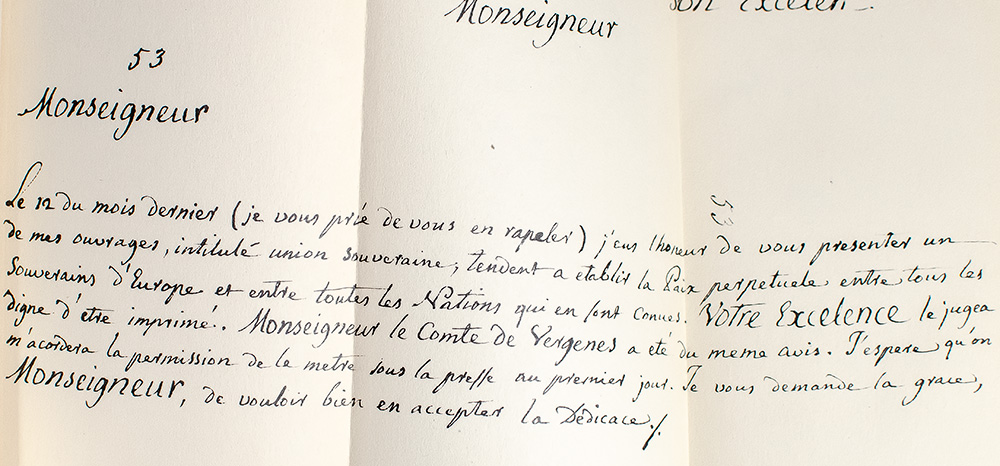 Monseigneur
son Excelen-
53
Monseigneur
53
Le 12 du mois dernier (je vous prié de vous en rapeler) j'eus lhoneur de vous presenter un
de mes ouvrages, intitulé union souveraine, tendent a établir la Paix perpetuele entre tous les
Souverains d'Europe et entre toutes les Nations qui en sont conues. Votre Excelence le jugea
digne d'etre imprimé. Monseigneur le Comte de Vergenes a été du meme avis. J'espere qu'on
m'acordera la permission de le metre sous la presse au premier jour. Je vous demande la grace,
Monseigneur, de vouloir bien en accepter la Dédicace./.